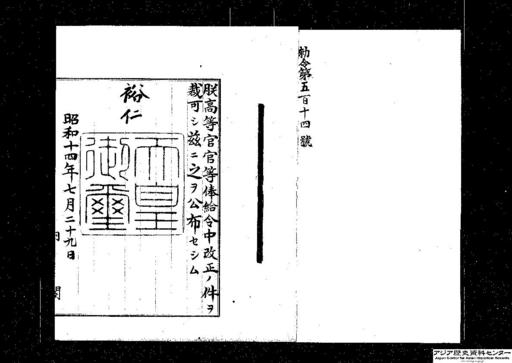 勅令第五百十四號
朕高等官官等俸給令中改正ノ件ヲ
裁可シ茲ニ之ヲ公布セシム
裕仁
天皇
御璽
昭和十四年七月二十九日
アジア歴史資料センター
Japan Center for Asian Historical Records